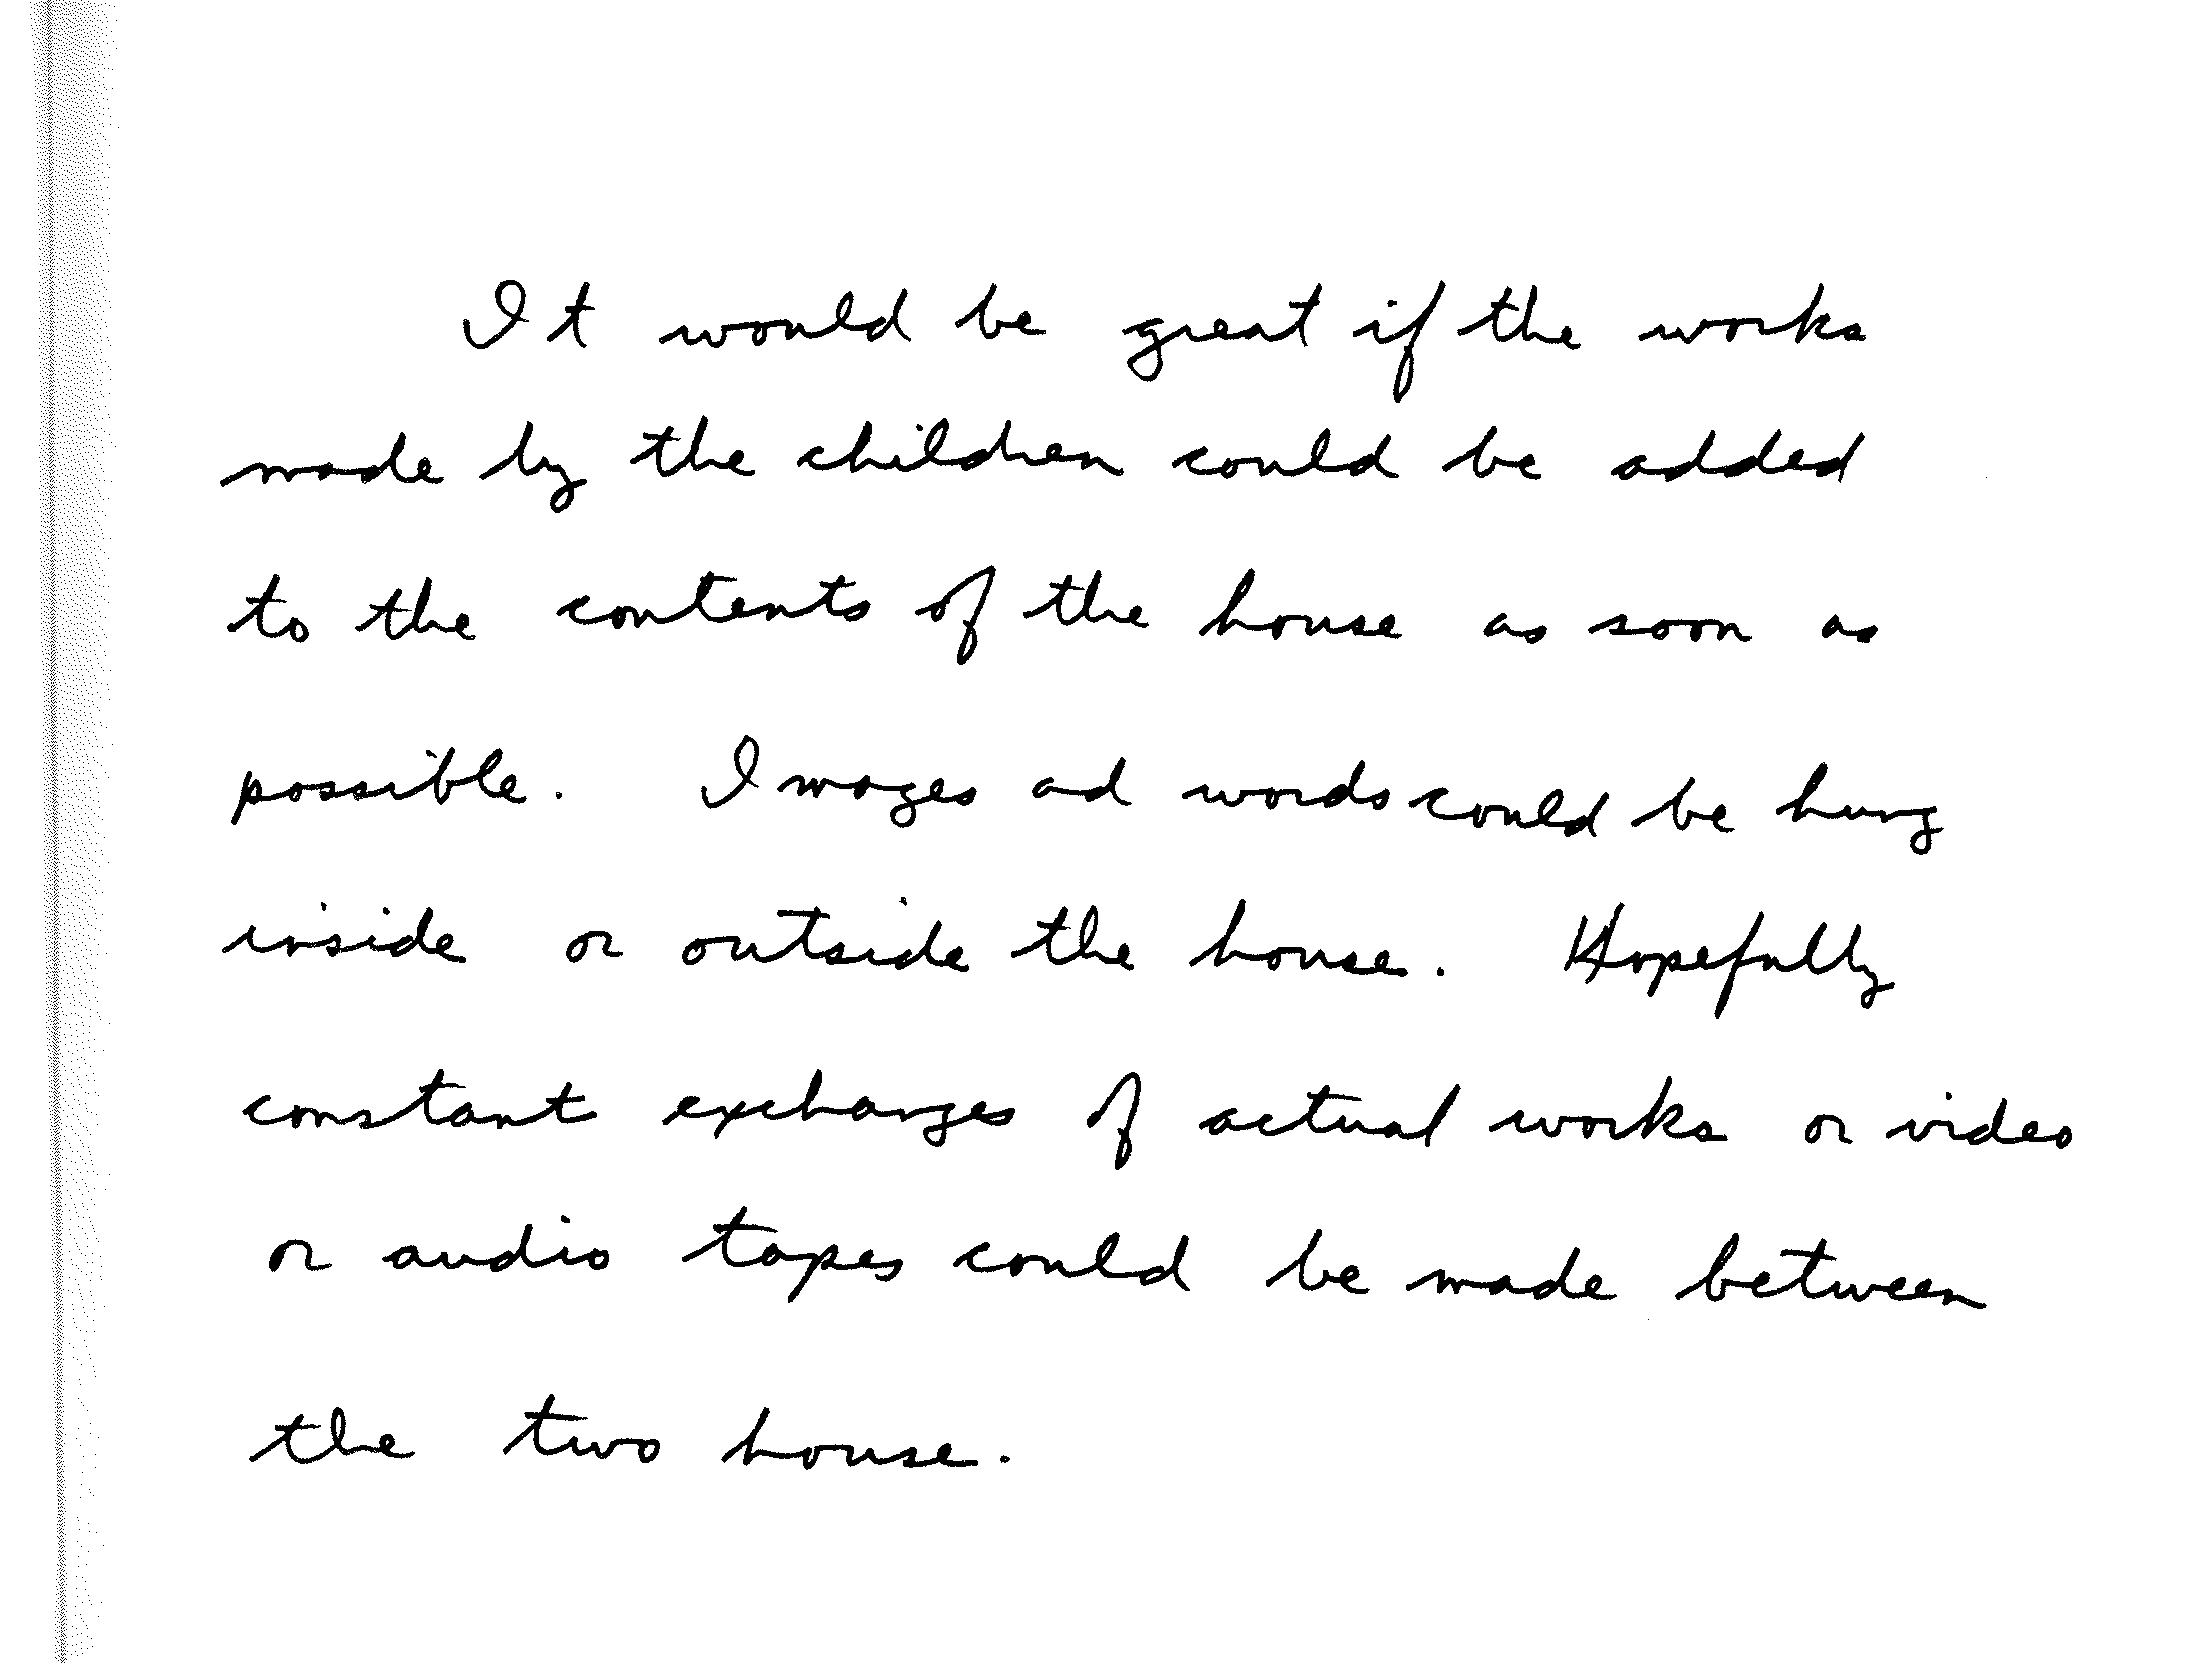 It would be great if the works
made by the children could be added
to the contents of the house as soon as
possible. Images ad words could be hung
inside or outside the house. Hopefully
constant exchanges of actual works or video
or audio tapes could be made between
the two house.